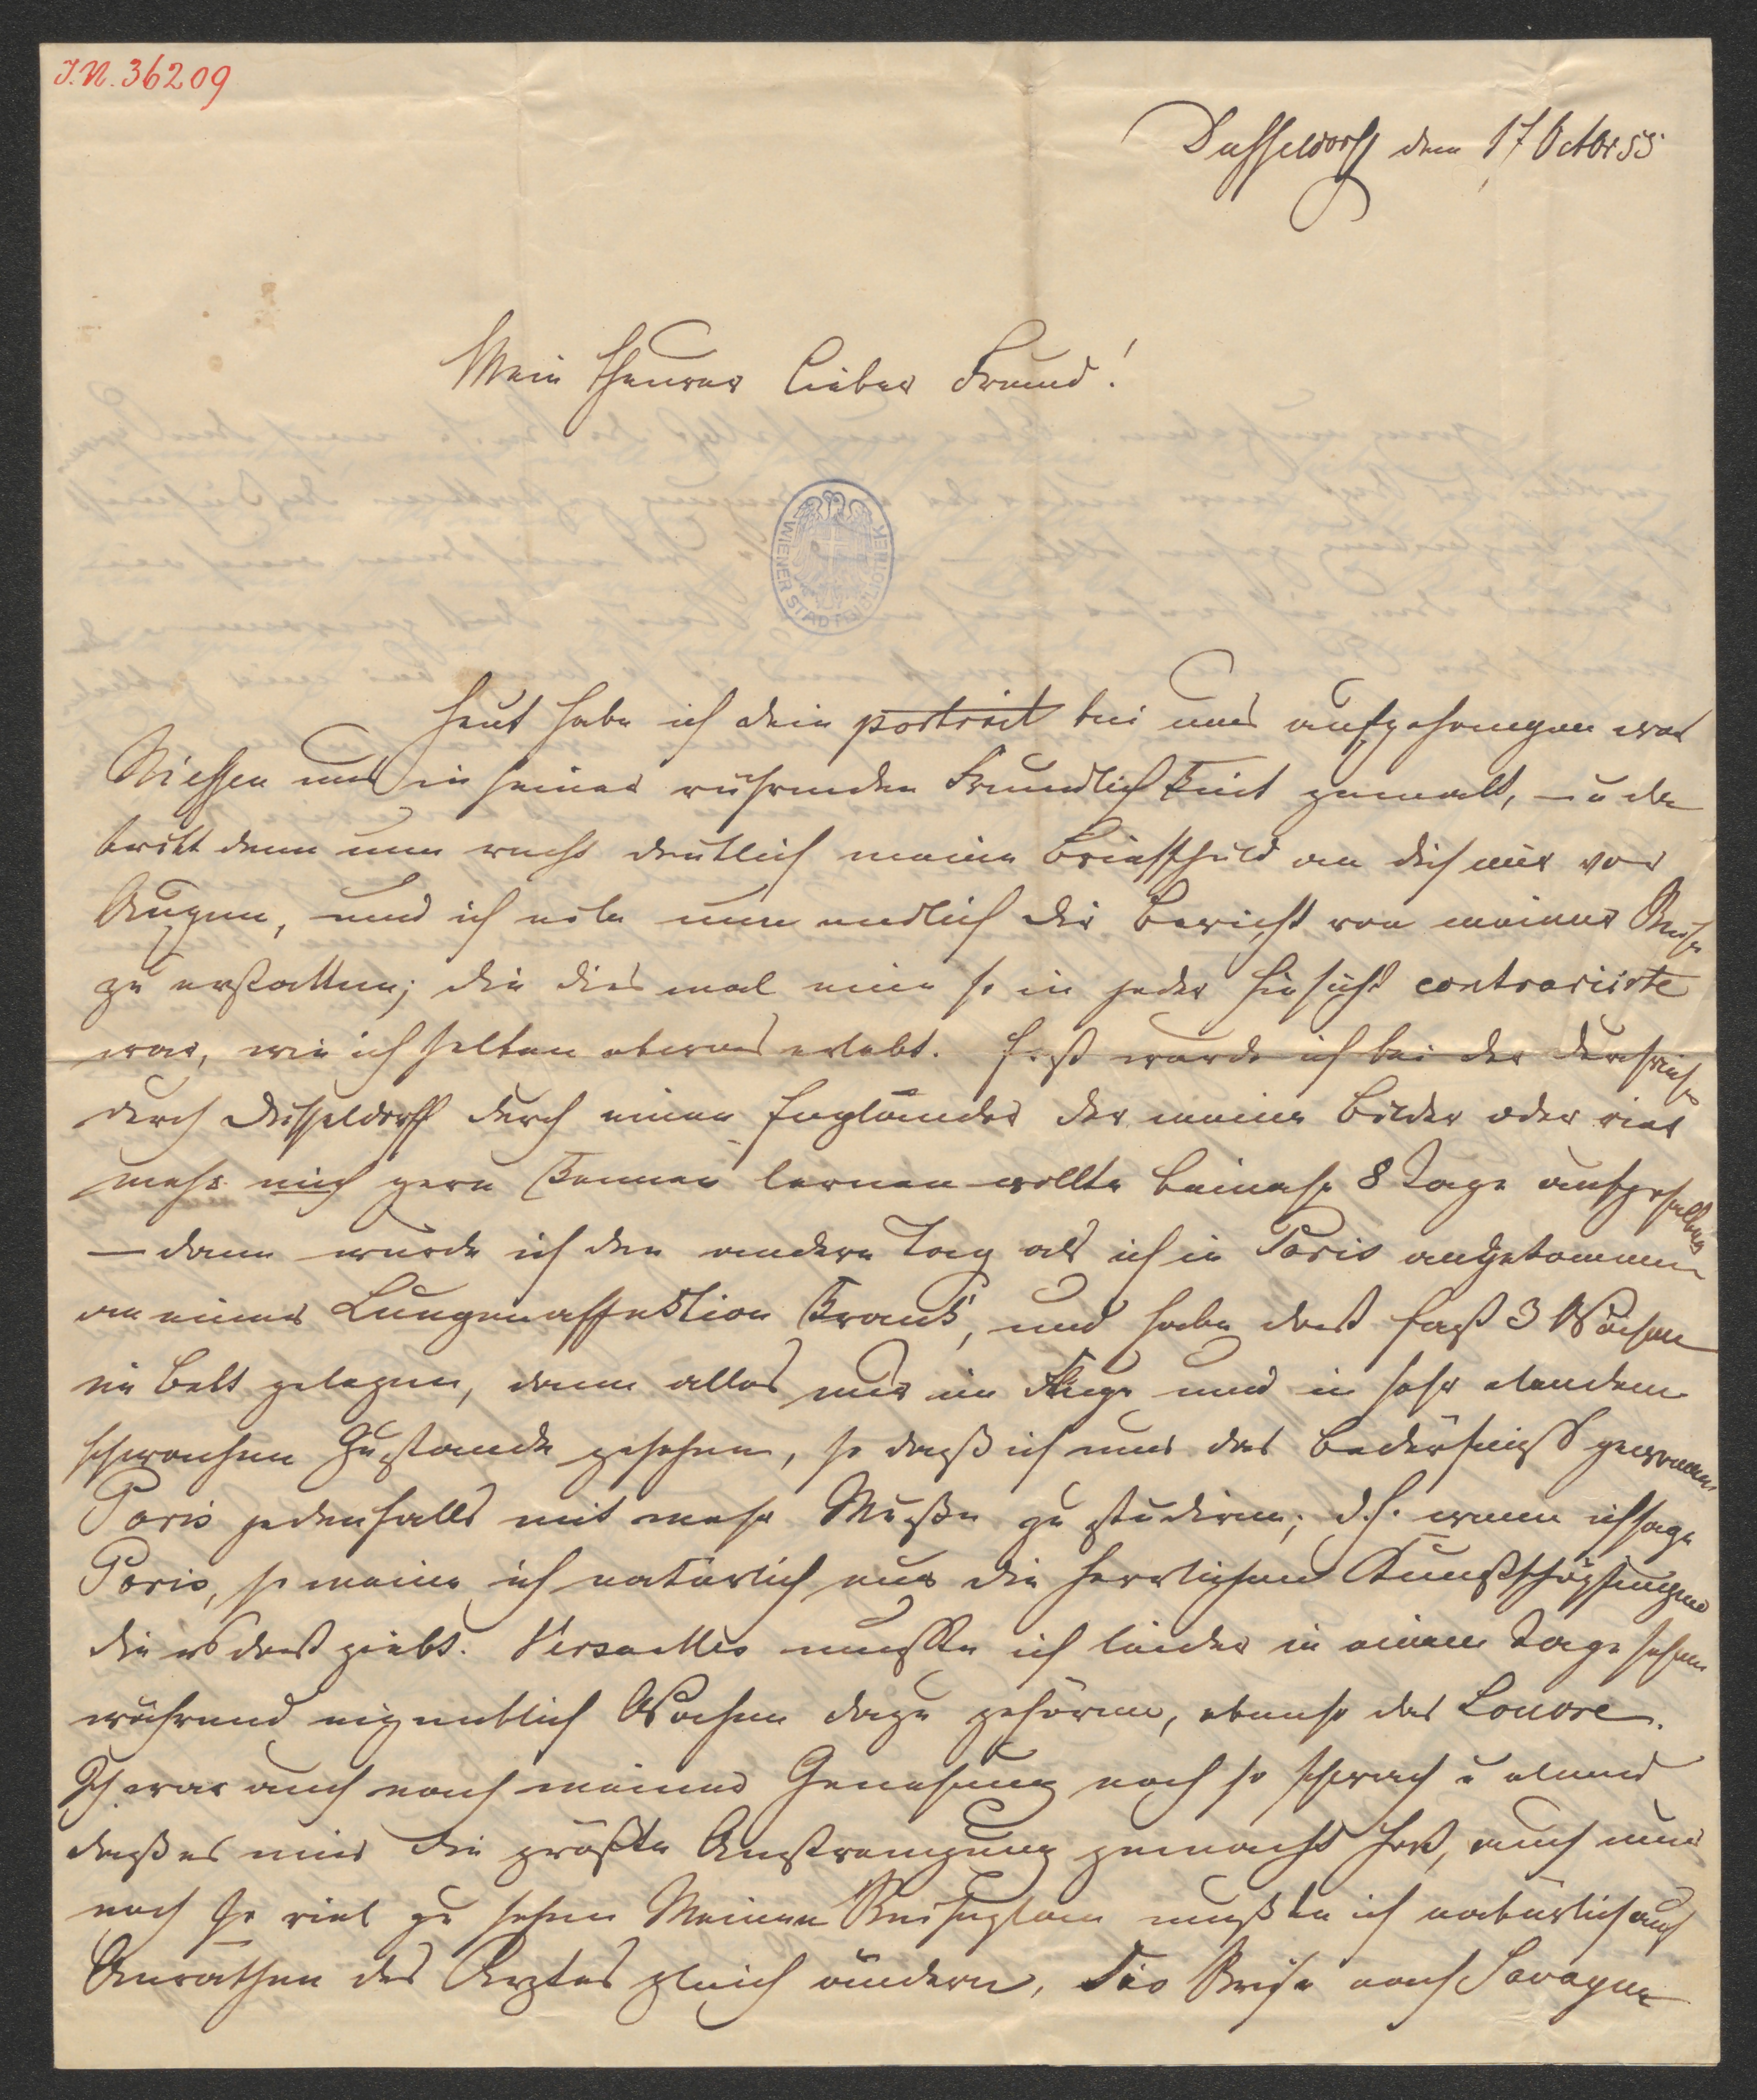 J.N. 36209
Dusseldorff den 17 Octbr 55
Mein theurer lieber Freund!
WIENER STADTBIBLIOTHEK
Heut habe ich dein portrait bei uns aufgehangen was
Niessen uns in seiner rührenden Freundlichkeit gemalt, – u da
tritt denn nun recht deutlich meine Briefschuld an dich mir vor
Augen, und ich eile nun endlich dir Bericht von meiner Reise
zu erstatten; die dies mal eine so in jeder Hinsicht contrariirte
war, wie ich selten etwas erlebt. Erst wurde ich bei der Durchreise
durch Dusseldorff durch einen Engländer der meine Bilder oder viel
mehr mich gern kennen lernen wollte beinahe 8 Tage aufgehalten
– dann wurde ich den andern Tag als ich in Paris angekommen
an einer Lungenaffektion krank, und habe dort fast 3 Wochen
im Bett gelegen, dann alles nur im Fluge und in sehr elendem
schwachen Zustande gesehen, so daß ich nun das Bedürfniß gewonnen
Paris jedenfalls mit mehr Muße zu studiren; d.h. wenn ich sage
Paris, so meine ich natürlich nur die herrlichen Kunstschöpfungen
die es dort giebt. Versailles mußte ich leider in einem Tage sehen
während eigentlich Wochen dazu gehören, ebenso das Louvre.
Ich war auch nach meiner Genesung noch so schwach u elend
daß es mir die größte Anstrengung gemacht hat, auch nur
noch so viel zu sehen Meinen Reiseplan mußte ich natürlich auf
Anrathen des Arztes gleich ändern, die Reise nach